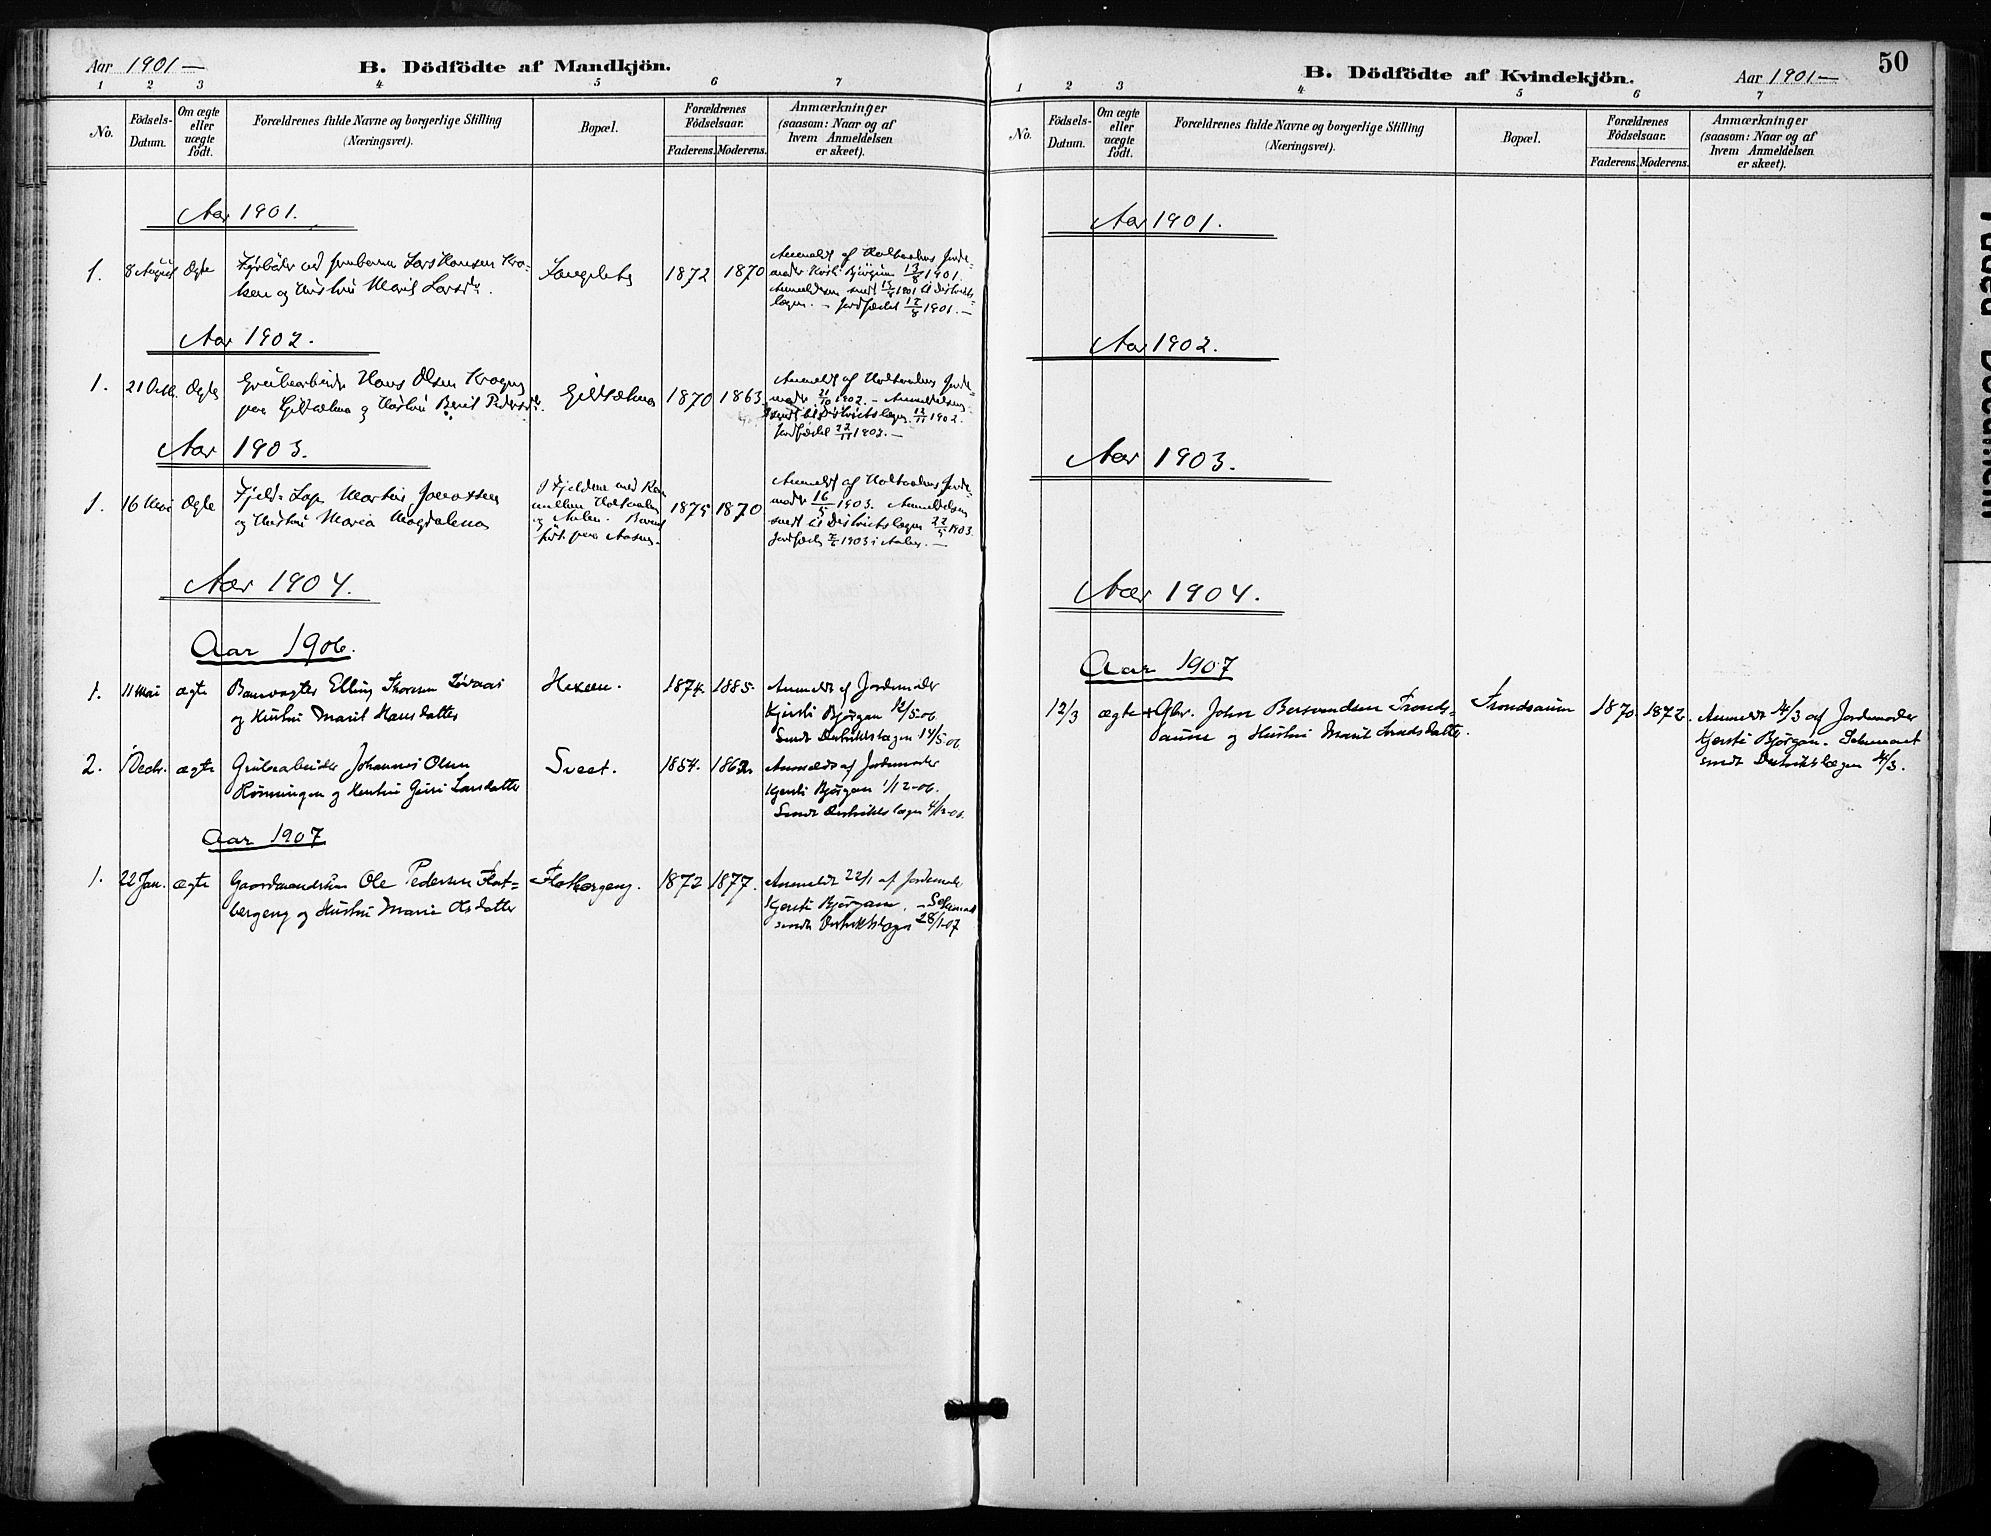 Aar 1901 —
B. Dödfödte af Mandkjön.
1 2 3 4 5 6 7
No.
Födsels-
Datum.
Om ægte
eller
uægte
födt.
Forældrenes fulde Navne og borgerlige Stilling
(Næringsvei).
Bopæl.
Forældrenes
Födselsaar.
Faderens. Moderens.
Anmærkninger
(saasom: Naar og af
hvem Anmeldelsen
er skeet).
Aar 1901.
1. 8 August Ægte
Lars Hansen Kro-
ken og Hustru Marit Larsd.
Langeleta
1872 1870
Anmeldt af Holtaalens Jorde-
moder Kirsti Bjørgum 13/8 1901.
Anmeldelsen sendt 15/8 1901 til Distrikts-
lægen. — Jordfæstet 12/8 1901. —
Aar 1902.
1. 21 Octb. Ægte
Grubearbeider Hans Olsen
paa og Hustru Berit Pedersd.
1870 1863
Anmeldt af Holtaalens Jorde-
moder 21/10 1902. — Anmeldelsen
sendt til Distriktslægen 12/11 1902.
Jordfæstet 22/11 1902. —
Aar 1903.
1. 16 Mai Ægte
Fjeld-Lap Martin Jonassen
og Hustru Maria Magdalena
I Fjeldene ved
mellem Holtaalen
og Aalen. Barnet
født paa
1875 1870
Anmeldt af Holtaalens Jorde-
moder 16/5 1903. Anmeldelsen
sendt til Distriktslægen 22/5 1903.
Jordfæstet 1903 i Aalen. —
Aar 1904.
Aar 1906.
1. 11 Mai ægte
Banevogter Elling Thorsen Løvaas
og Hustru Marit Hansdatter
Hexem.
1874. 1885.
Anmeldt af Jordemoder
Kjersti Bjørgan 12/5-06.
Sendt Distriktslægen 14/5-06
2. 1 Decbr. ægte
Grubearbeider Johannes Olsen
Rønningen og Hustru Guri Larsdatter
Svect.
1854.
Anmeldt af Jordemoder
Kjersti Bjørgan 1/12-06.
Sendt Distriktslægen 4/12-06.
Aar 1907
1. 22 Jan. ægte
Gaardmandssøn Ole Pedersen Flat=
bergeng og Hustru Marie Olsdatter
Flatbergeng.
1872 1877.
Anmeldt 22/1 af Jordemoder
Kjersti Bjørgan. — Schemaet
sendt Distriktslægen 28/1-07
B. Dödfödte af Kvindekjön.
Aar 1901 —
50
1 2 3 4 5 6 7
No.
Födsels-
Datum.
Om ægte
eller
uægte
födt.
Forældrenes fulde Navne og borgerlige Stilling
(Næringsvei).
Bopæl.
Forældrenes
Födselsaar.
Faderens. Moderens.
Anmærkninger
(saasom: Naar og af
hvem Anmeldelsen
er skeet).
Aar 1901.
Aar 1902.
Aar 1903.
Aar 1904.
Aar 1907
12/3 ægte
Gbr. John Bersvendsen Tronds=
aune og Hustru Marit Trondsdatter.
Trondsaune
1870 1872.
Anmeldt 14/3 af Jordemoder
Kjersti Bjørgan. Schemaet
sendt Distriktslægen 14/3.